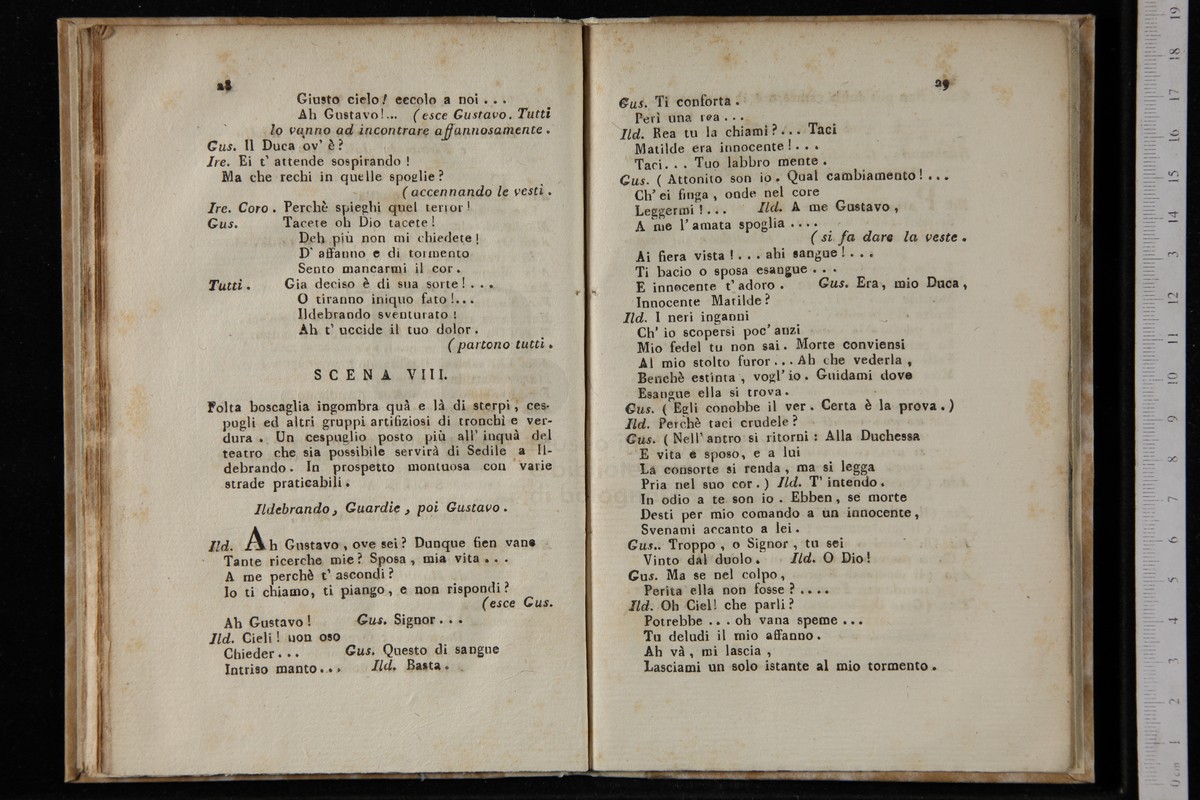 28
Giusto cielo! eccolo a noi . . .
Ah Gustavo!... (esce Gustavo. Tutti
lo vanno ad incontrare affannosamente .
Gus. Il Duca ov' è ?
Ire. Ei t' attende sospirando !
Ma che rechi in quelle spoglie ?
(accennando le vesti .
Ire. Coro . Perchè spieghi quel terror !
Gus. Tacete oh Dio tacete !
Deh più non mi chiedete !
D' affanno e di tormento
Sento mancarmi il cor .
Tutti . Gia deciso è di sua sorte ! . . .
O tiranno iniquo fato !...
Ildebrando sventurato !
Ah t' uccide il tuo dolor .
(partono tutti .
SCENA VIII.
Folta boscaglia ingombra quà e là di sterpi , ces-
pugli ed altri gruppi artifiziosi di tronchi e ver-
dura . Un cespuglio posto più all' inquà del
teatro che sia possibile servirà di Sedile a Il-
debrando . In prospetto montuosa con varie
strade praticabili .
Ildebrando , Guardie , poi Gustavo .
Ild. Ah Gustavo , ove sei ? Dunque fien vane
Tante ricerche mie ? Sposa , mia vita . . .
A me perchè t' ascondi ?
Io ti chiamo, ti piango , e non rispondi ?
(esce Gus.
Ah Gustavo ! Gus. Signor . . .
Ild. Cieli ! non oso
Chieder . . . Gus. Questo di sangue
Intriso manto . . . Ild. Basta .
29
Gus. Ti conforta .
Perì una rea . . .
Ild. Rea tu la chiami ? . . . Taci
Matilde era innocente ! . . .
Taci . . . Tuo labbro mente .
Gus. ( Attonito son io . Qual cambiamento ! . . .
Ch' ei finga , onde nel core
Leggermi ! . . . Ild. A me Gustavo ,
A me l' amata spoglia . . . .
(si fa dare la veste .
Ai fiera vista ! . . . ahi sangue ! . . .
Ti bacio o sposa esangue . . .
E innocente t' adoro . Gus. Era , mio Duca ,
Innocente Matilde ?
Ild. I neri inganni
Ch' io scopersi poc' anzi
Mio fedel tu non sai . Morte conviensi
Al mio stolto furor . . . Ah che vederla ,
Benchè estinta , vogl' io . Guidami dove
Esangue ella si trova .
Gus. ( Egli conobbe il ver . Certa è la prova . )
Ild. Perchè taci crudele ?
Gus. ( Nell' antro si ritorni : Alla Duchessa
E vita e sposo, e a lui
La consorte si renda , ma si legga
Pria nel suo cor . ) Ild. T' intendo .
In odio a te son io . Ebben , se morte
Desti per mio comando a un innocente ,
Svenami accanto a lei .
Gus.. Troppo , o Signor , tu sei
Vinto dal duolo . Ild. O Dio !
Gus. Ma se nel colpo ,
Perita ella non fosse ? . . . .
Ild. Oh Ciel ! che parli ?
Potrebbe . . . oh vana speme . . .
Tu deludi il mio affanno .
Ah và , mi lascia ,
Lasciami un solo istante al mio tormento .